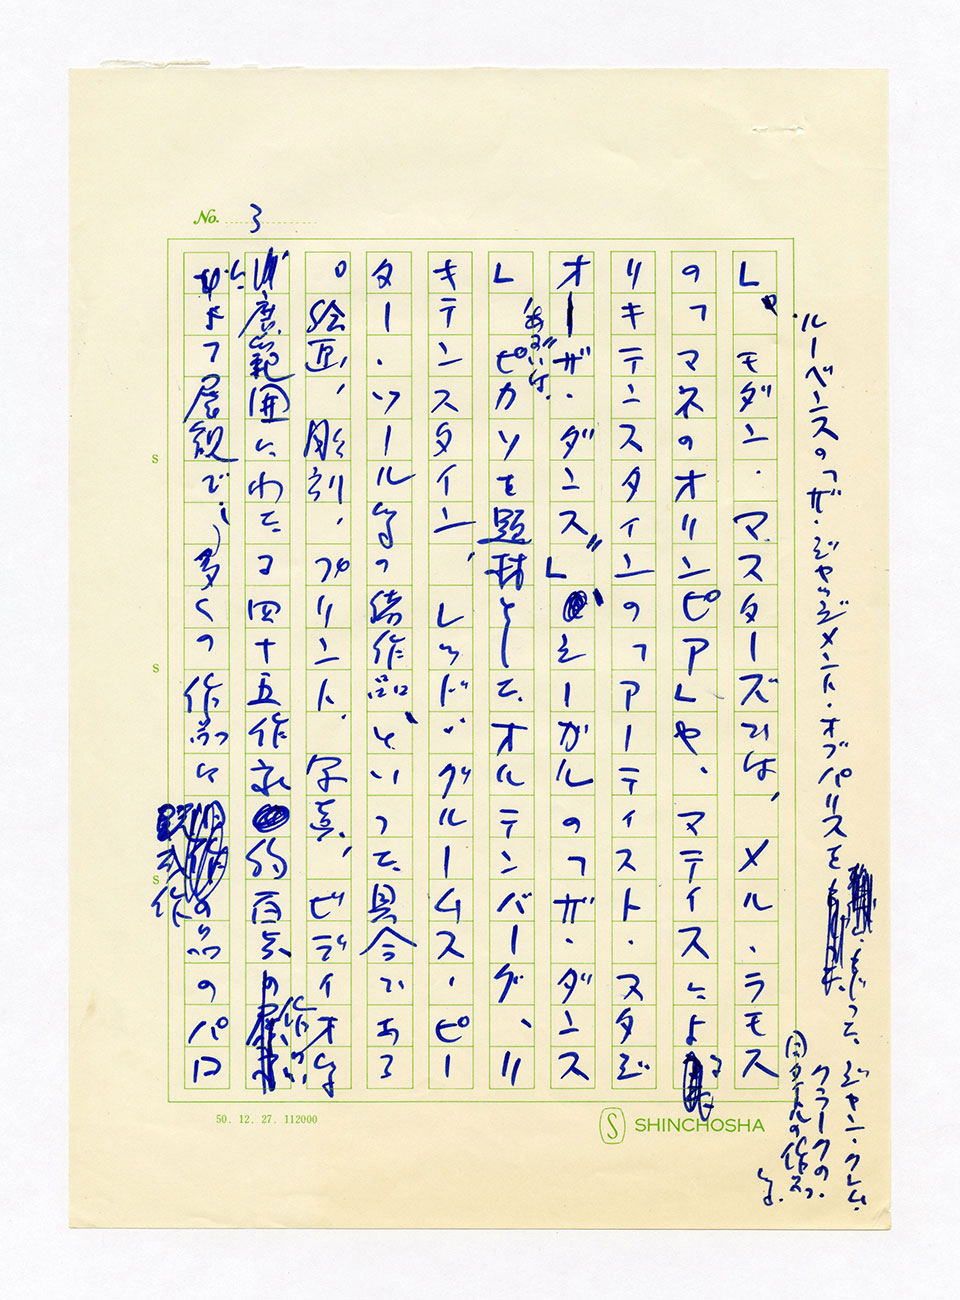 No. 3
ルーベンスの「ザ・ジャッジメント・オブパリスを
もじって、ジャン・クレム・
クラークの
同タイトルの作品
」、モダン・マスターズでは、メル・ラモス
の「マネのオリンピア」や、マティスによる
リキテンスタインの「アーティスト・スタジ
オーザ・ダンス」シーガルの「ザ・ダンス
」あるいは、ピカソを題材として、オルテンバーグ、リ
キテンスタイン、レッド・グルームス・ピー
ター・ソール等の諸作品といって、具合である
。絵画、彫刻、プリント、写真、ビディオ等
広範囲にわたる四十五作家 約百点の作品
展観で、多くの作品に
既式作の品のパロ
S
S
S
50. 12. 27. 112000
S SHINCHOSHA